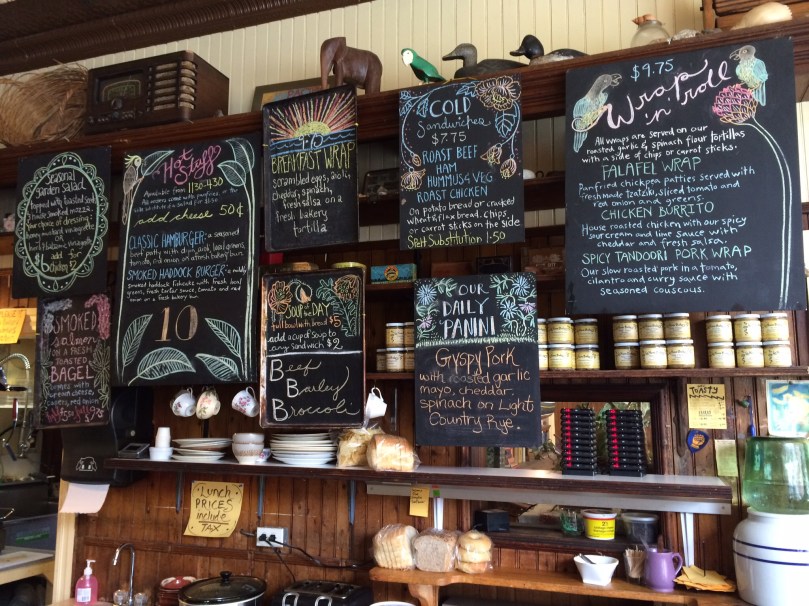 Seasonal
Garden Salad
Topped with toasted seeds
choice of dressing:
add for chicken
$2
SMOKED
Salmon
ON A FRESH
TOASTED
BAGEL
Hot Stuff
Available from 1130-430
add cheese 50¢
CLASSIC HAMBURGER - a seasoned
beef patty with
SMOKED HADDOCK BURGER - a mildly
smoked haddock fishcake with fresh local
greens, fresh tartar sauce, tomato and red
onion on a fresh bakery bun
10
BREAKFAST WRAP
scrambled eggs, aioli,
cheddar, spinach,
fresh salsa on a
fresh bakery
tortilla
COLD
Sandwiches
$7.75
ROAST BEEF
HAM
HUMMUS & VEG
ROAST CHICKEN
On potato bread or cracked
wheat & flax bread. chips
or carrot sticks on the side
Spelt Substitution 1.50
$9.75
Wrap
'n' roll
All wraps are served on our
roasted garlic & spinach flour tortillas
with a side of chips or carrot sticks.
FALAFEL WRAP
Panfried chickpea patties served with
fresh made tzatziki, sliced tomato and
red onion and greens.
CHICKEN BURRITO
House roasted chicken with our spicy
sour cream and lime sauce with
cheddar and fresh salsa.
SPICY TANDOORI PORK WRAP
Our slow roasted pork in a tomato,
cilantro and curry sauce with
seasoned couscous.
SOUP of the DAY
full bowl with bread $5
add a cup of soup to
any sandwich $2
Beef
Barley
Broccoli
OUR
DAILY
PANINI
Gryspy Pork
with roasted garlic
mayo, cheddar,
spinach on Light
Country Rye.
Lunch
PRICES
include
TAX
TOASTY